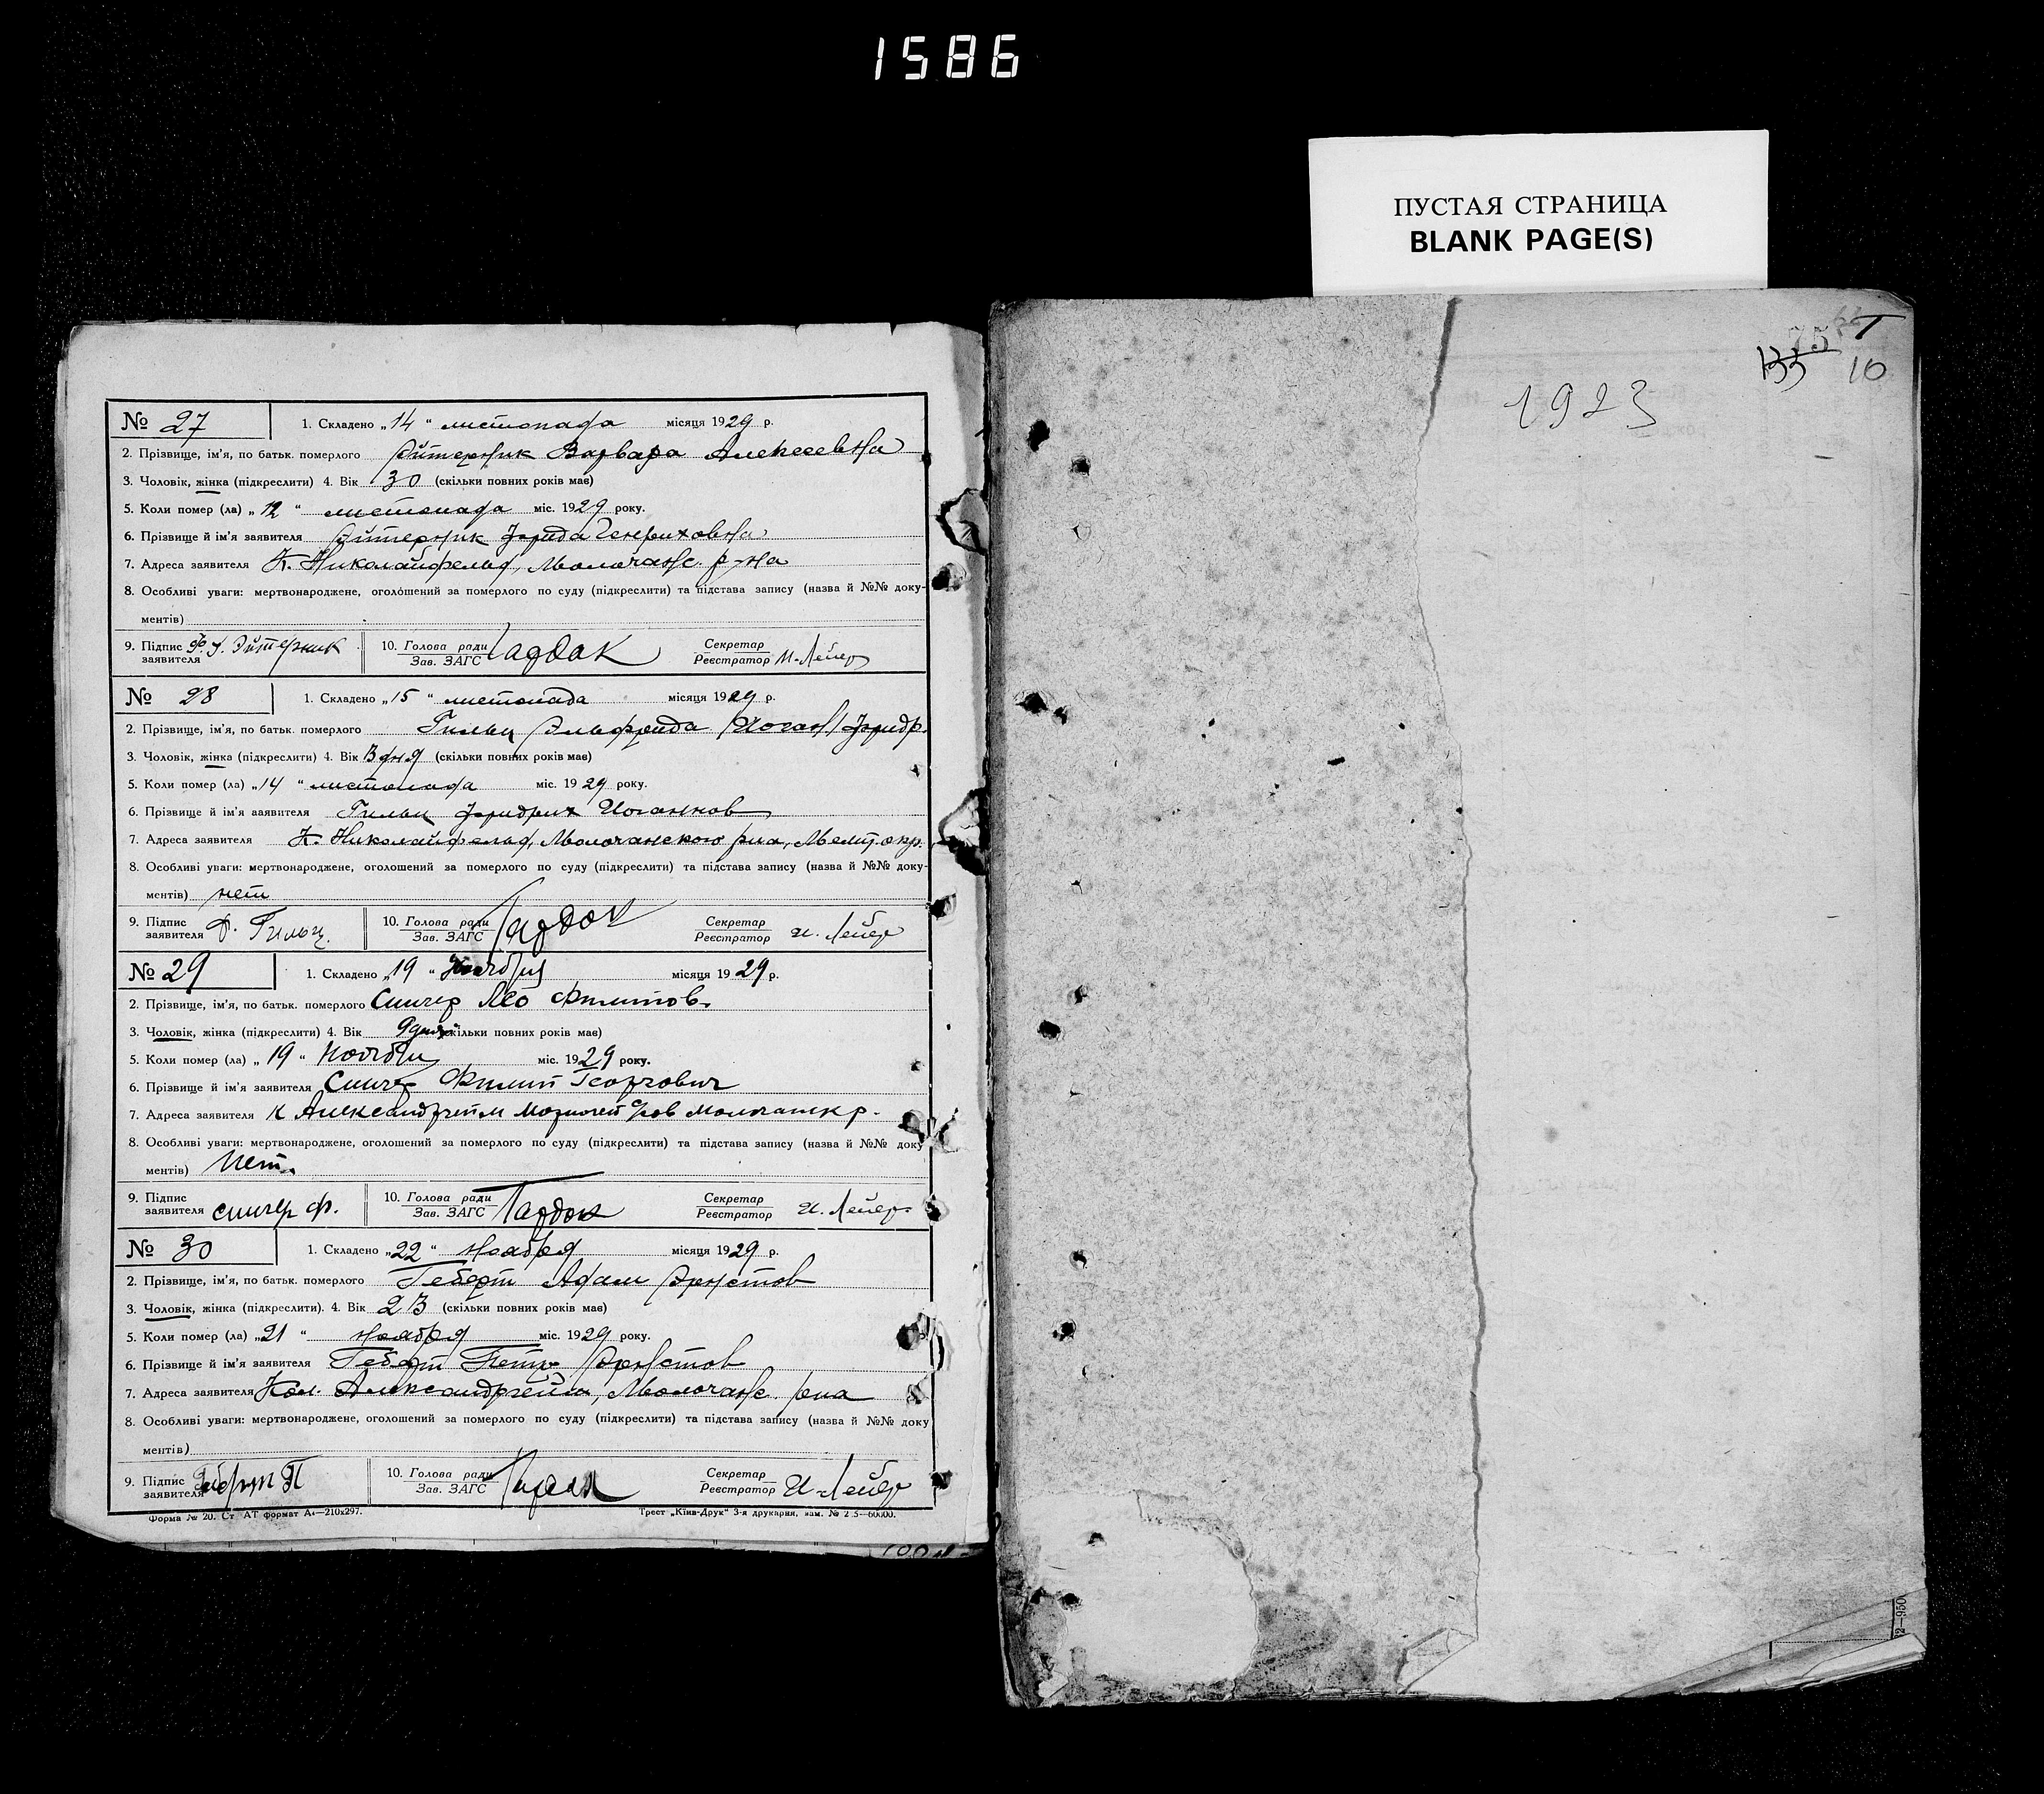 1586
ПУСТАЯ СТРАНИЦА
BLANK PAGE(S)
№ 27
1. Складено „14“ листопада місяця 1929 р.
2. Прізвище, ім'я, по батьк. померлого Эйтерник Варвара Алексеевна
3. Чоловік, жінка (підкреслити) 4. Вік 30 (скільки повних років має)
5. Коли помер (ла) „12“ листопада міс. 1929 року.
6. Прізвище й ім'я заявителя Эйтерник Фрида Генриховна
7. Адреса заявителя К. Николайфельд, Молочанс. р-на
8. Особливі уваги: мертвонароджене, оголошений за померлого по суду (підкреслити) та підстава запису (назва й №№ доку-
ментів)
9. Підпис заявителя Эйтерник
10. Голова ради Зав. ЗАГС Гардок
Секретар Реєстратор И. Лейер
№ 28
1. Складено „15“ листопада місяця 1929 р.
2. Прізвище, ім'я, по батьк. померлого Гильц Эльфрида /Иоган/ Фридр.
3. Чоловік, жінка (підкреслити) 4. Вік 3 дня (скільки повних років має)
5. Коли помер (ла) „14“ листопада міс. 1929 року.
6. Прізвище й ім'я заявителя Гильц Фридрих Иоганнов
7. Адреса заявителя К. Николайфельд, Молочанского р-на, Мелит. окр.
8. Особливі уваги: мертвонароджене, оголошений за померлого по суду (підкреслити) та підстава запису (назва й №№ доку-
ментів) нет
9. Підпис заявителя Ф. Гильц.
10. Голова ради Зав. ЗАГС Гардок
Секретар Реєстратор И. Лейер
№ 29
1. Складено „19“ Ноября місяця 1929 р.
2. Прізвище, ім'я, по батьк. померлого Сингер Лео Филипов.
3. Чоловік, жінка (підкреслити) 4. Вік 9 дня (скільки повних років має)
5. Коли помер (ла) „19“ Ноября міс. 1929 року.
6. Прізвище й ім'я заявителя Сингер Филип Георгович
7. Адреса заявителя К Александргейм
8. Особливі уваги: мертвонароджене, оголошений за померлого по суду (підкреслити) та підстава запису (назва й №№ доку
ментів) Нет.
9. Підпис заявителя Сингер Ф.
10. Голова ради Зав. ЗАГС Гардок
Секретар Реєстратор И. Лейер
№ 30
1. Складено „22“ Ноября місяця 1929 р.
2. Прізвище, ім'я, по батьк. померлого Геберт Адам Эрнстов
3. Чоловік, жінка (підкреслити). 4. Вік 23 (скільки повних років має)
5. Коли помер (ла) „21“ ноября міс. 1929 року.
6. Прізвище й ім'я заявителя Геберт Петр Эрнстов
7. Адреса заявителя Кол. Александргейм, Молочанс. р-на
8. Особливі уваги: мертвонароджене, оголошений за померлого по суду (підкреслити) та підстава запису (назва й №№ доку
ментів)
9. Підпис заявителя Геберт П
10. Голова ради Зав. ЗАГС
Секретар Реєстратор И. Лейер
Форма № 20. Ст АТ формат А4—210x297.
Трест „Київ-Друк“ 3-я друкарня, зам. № 2 5—60000.
75
133 10
1923